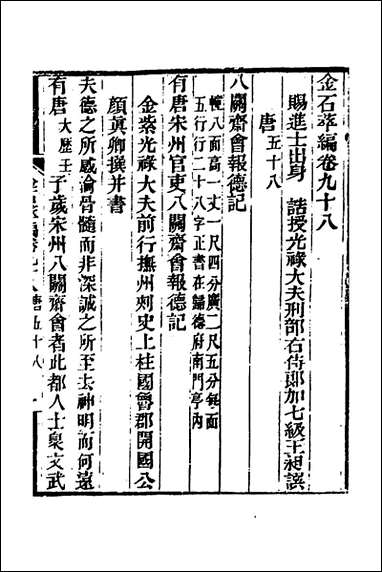 金石萃編卷九十八
賜進士出身 誥授光祿大夫刑部右侍郎加七級王昶譔
唐五十八
八關齋會報德記
幢八面高一丈一尺四分廣二尺五分每面
五行行二十八字正書在歸德府南門亭內
有唐宋州官吏八關齋會報德記
金紫光祿大夫前行撫州刺史上柱國魯郡開國公
顏眞卿撰并書
夫德之所感淪骨髓而非深誠之所至去神明而何遠
有唐大歷壬子歲宋州八關齋會者此都人士衆文武
金石萃編卷九十八唐五十八 一